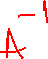 A⁻¹